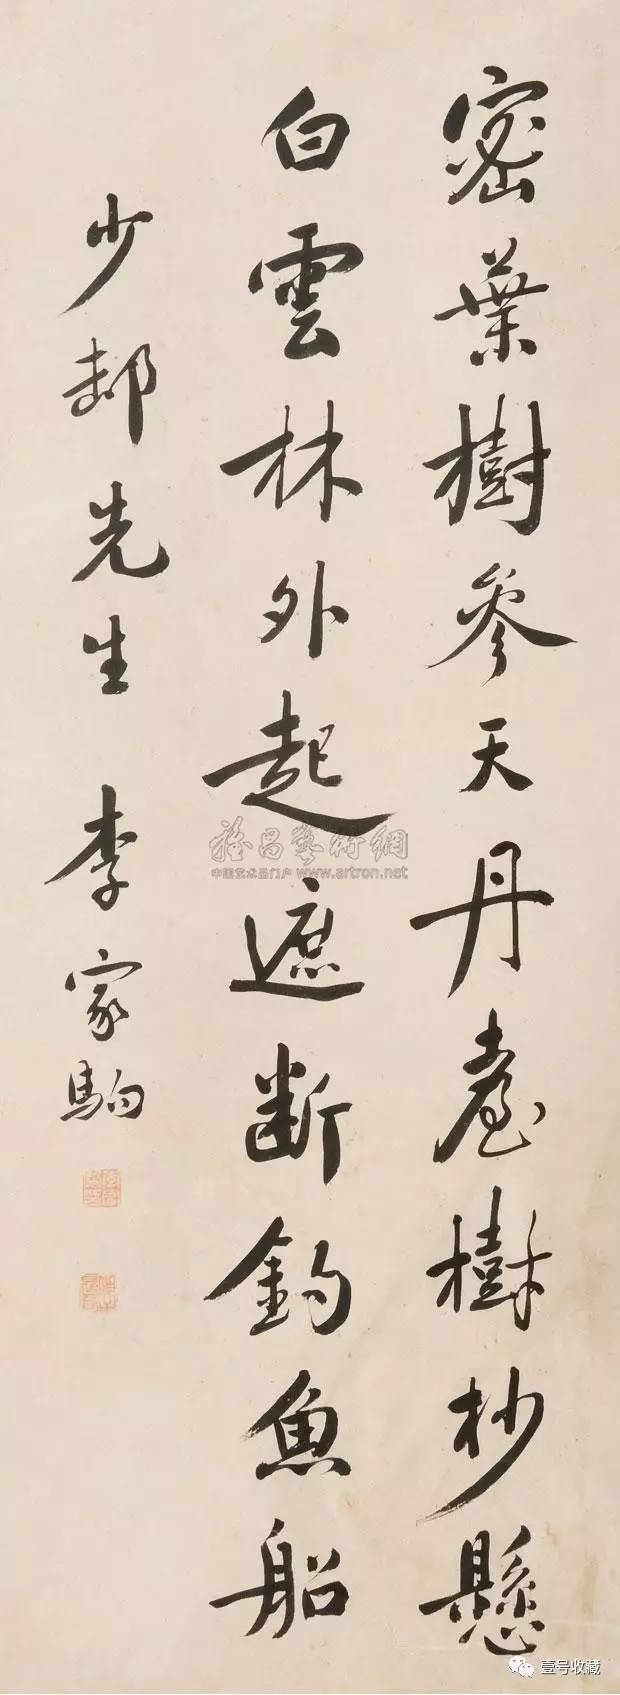 密葉樹參天丹臺樹杪懸
白雲林外起遮斷釣魚船
少邨先生 李家駒
雅昌藝術網
中国艺术品门户 www.artron.net
壹号收藏